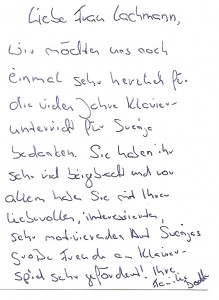 Liebe Frau Lachmann,
wir möchten uns noch
einmal sehr herzlich f.
die vielen Jahre Klavier-
unterricht für Svenja
bedanken. Sie haben ihr
sehr viel beigebracht und vor
allem haben Sie mit Ihrer
liebevollen, interessierten,
sehr motivierenden Art Svenjas
große Freude am Klavier-
spiel sehr gefördert! Ihre
Familie